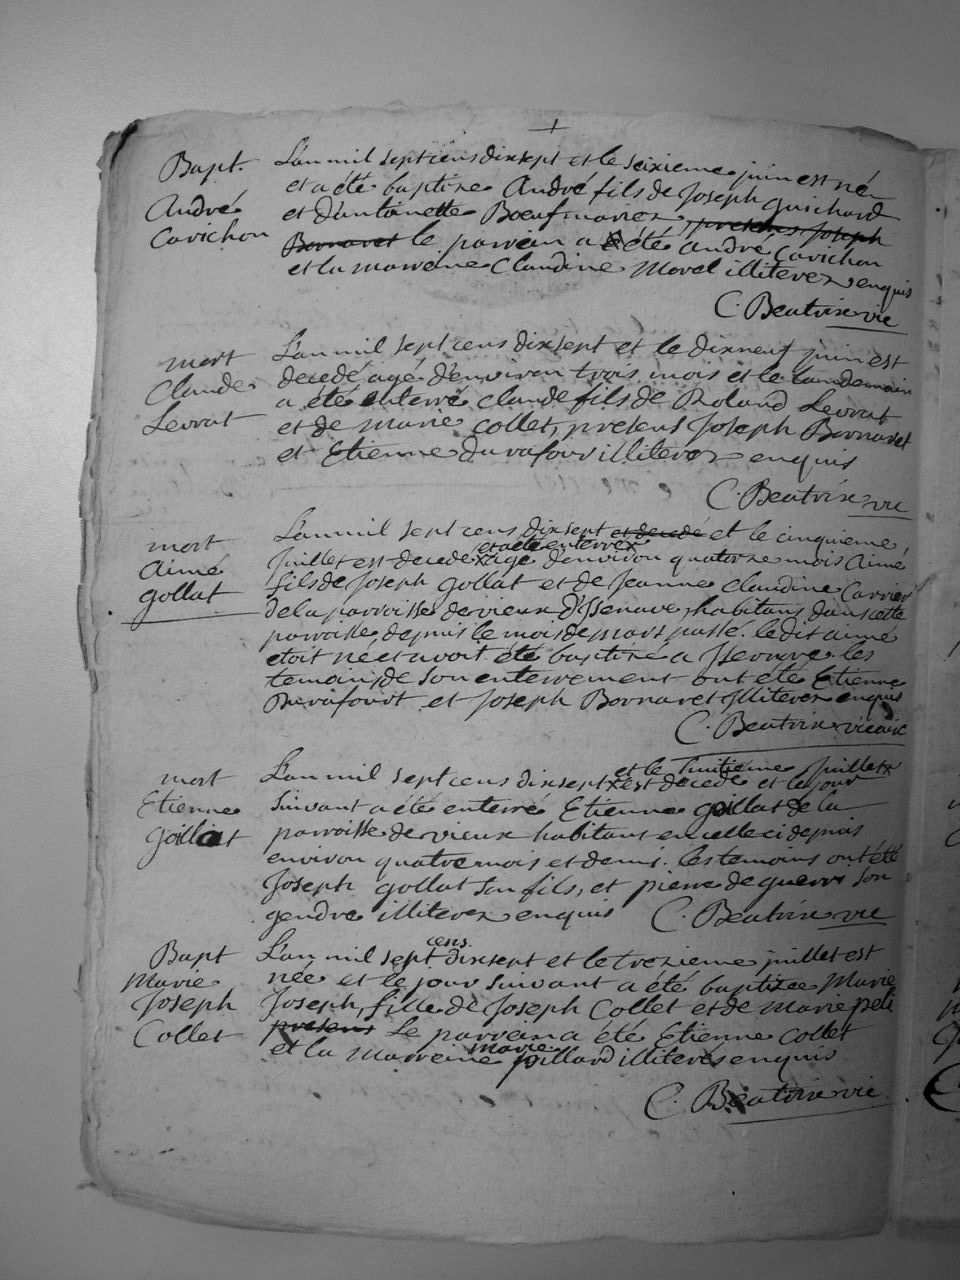 Bapt.
André
Cavichon
L'an mil sept cens dix sept et le seixieme juin est né
et a été baptize André fils de Joseph Guichard
et d'antoinette Boeuf mariez presens Joseph
Bornaret le parrein a été andré Cavichon
et la marreine Claudine Morel illiterez enquis
C. Beatrix vic
mort
Claude
Levrat
L'an mil sept cens dix sept et le dixneuf juin est
decedé agé d'environ trois mois et le landemain
a été enterré claude fils de Roland Levrat
et de marie Collet, presens Joseph Bornaret
et Etienne Durafour illiterez enquis
C. Beatrix vic
mort
Aimé
gollat
L'an mil sept cens dix sept et decedé et le cinquieme
et a été enterré
Juillet est decedé agé d'environ quatorze mois Aimé
fils de Joseph gollat et de Jeanne Claudine Carrier
de la parroisse de vieux d'Issenave, habitans dans cette
parroisse depuis le mois de mars passé. le dit aimé
etoit né et avoit été baptizé a les
temoins de son enterrement ont été Etienne
Durafourt et Joseph Bornaret illiterez enquis
C. Beatrix vicaire
mort
Etienne
Goilliat
et le huitieme Juillet
L'an mil sept cens dix sept est decedé et le jour
suivant a été enterré Etienne goillat de la
parroisse de vieux habitant en celle ci depuis
environ quatre mois et demi. les temoins ont été
Joseph gollat son fils, et pierre de guerre son
gendre illiterez enquis C. Beatrix vic
Bapt
Marie
Joseph
Collet
cens
L'an mil sept dix sept et le trezieme juillet est
née et le jour suivant a été baptizee Marie
Joseph, fille de Joseph Collet et de Marie peli
presens Le parrein a été Etienne Collet
marie
et la marreine joillard illiterés enquis
C. Beatrix vic